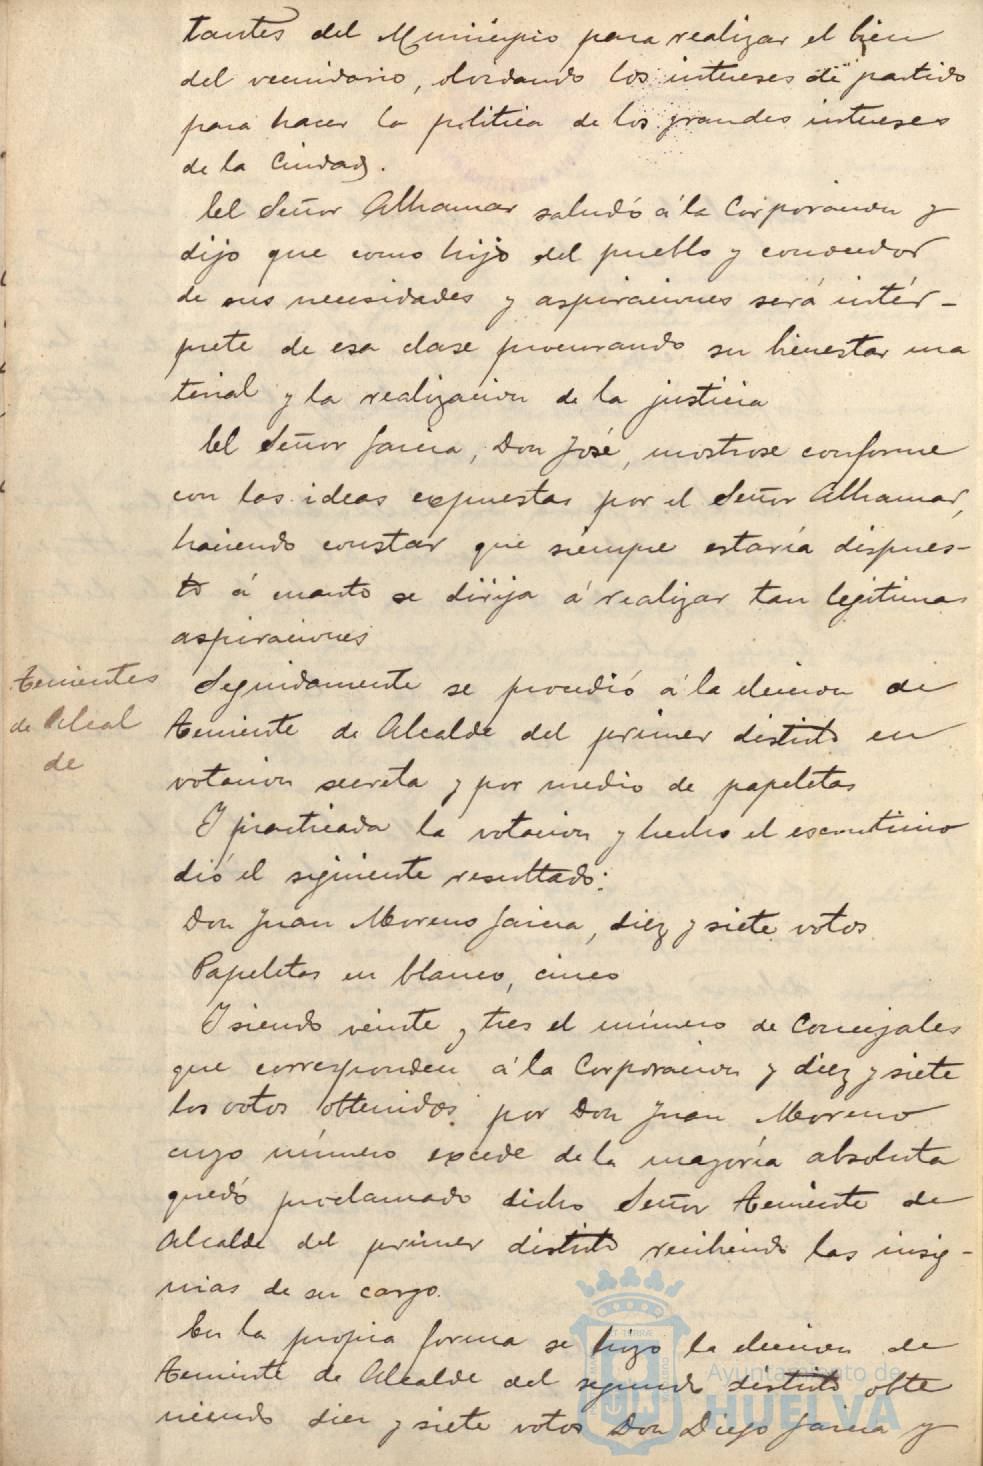 tantes del Municipio para realizar el bien
del vecindario, olvidando los intereses de partido
para hacer la politica de los grandes intereses
de la Ciudad.
El Señor Alhamar saludó á la Corporacion y
dijo que como hijo del pueblo y conocedor
de sus necesidades y aspiraciones será intér-
prete de esa clase procurando su bienestar ma
terial y la realizacion de la justicia
El Señor Garcia, Don José, mostrose conforme
con las ideas expuestas por el Señor Alhamar,
haciendo constar que siempre estaría dispues-
to á cuanto se dirija á realizar tan legitimas
aspiraciones
Tenientes
de Alcal
de
Seguidamente se procedió á la eleccion de
Teniente de Alcalde del primer distrito en
votacion secreta y por medio de papeletas
Y practicada la votacion y hecho el escrutinio
dió el siguiente resultado:
Don Juan Moreno Garcia, diez y siete votos
Papeletas en blanco, cinco
Y siendo veinte y tres el número de Concejales
que corresponden á la Corporacion y diez y siete
los votos obtenidos por Don Juan Moreno
cuyo número excede de la mayoría absoluta
quedó proclamado dicho Señor Teniente de
Alcalde del primer distrito recibiendo las insig-
nias de su cargo.
En la propia forma se hizo la eleccion de
Teniente de Alcalde del segundo distrito obte
niendo diez y siete votos Don Diego Garcia y
Ayuntamiento de
HUELVA